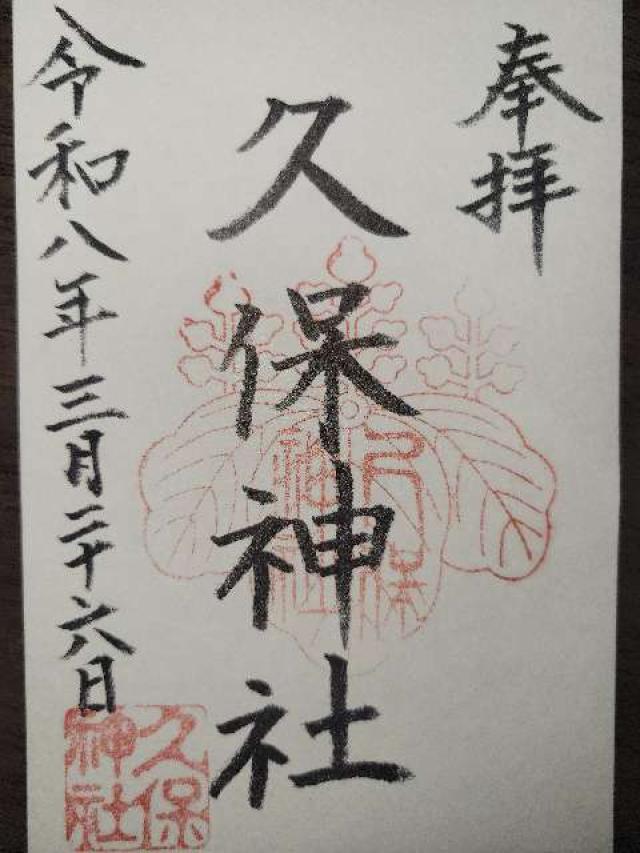 奉拝
久保神社
令和八年三月二十六日
久保
神社
久保
神社